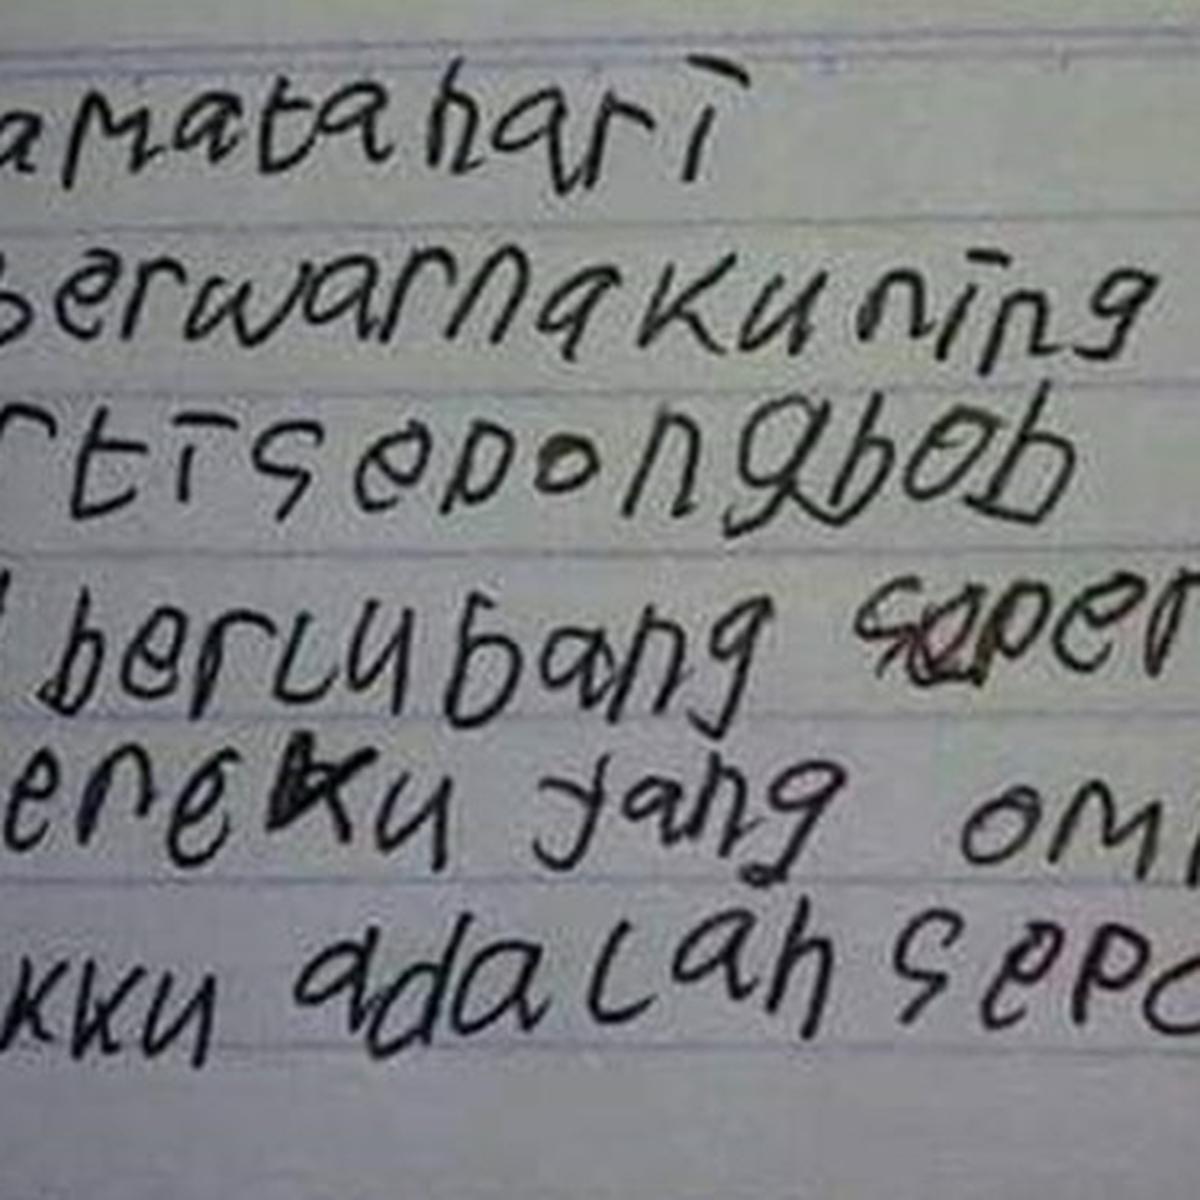 amatahari
berwarnakuning
rtisepongbob
berlubang seper
erenku yang om
kku adalah sepo